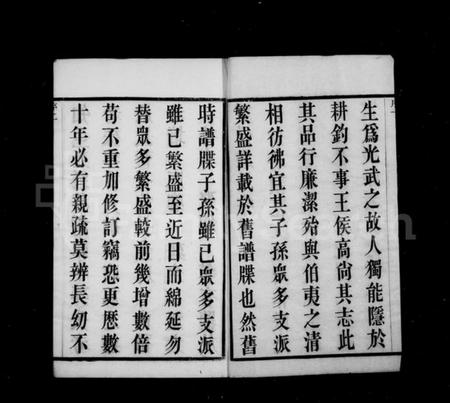 生爲光武之故人獨能隱於
耕釣不事王侯高尚其志此
其品行廉潔殆與伯夷之清
相彷彿宜其子孫眾多支派
繁盛詳載於舊譜牒也然舊
時譜牒子孫雖已眾多支派
雖已繁盛至近日而綿延勿
替眾多繁盛較前幾增數倍
苟不重加修訂竊恐更歷數
十年必有親疏莫辨長幼不